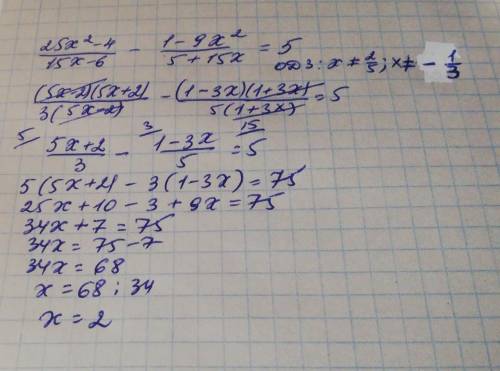 25x²-4/15x-6 - 1-9x²/5+15x = 5 ОДЗ: x ≠ 2/5; x ≠ - 1/3
(5x-2)(5x+2)/3(5x-2) - (1-3x)(1+3x)/5(1+3x) = 5
5/ 5x+2/3 - 3/ 1-3x/5 = 15/ 5
5(5x+2) - 3(1-3x) = 75
25x + 10 - 3 + 9x = 75
34x + 7 = 75
34x = 75 - 7
34x = 68
x = 68 : 34
x = 2